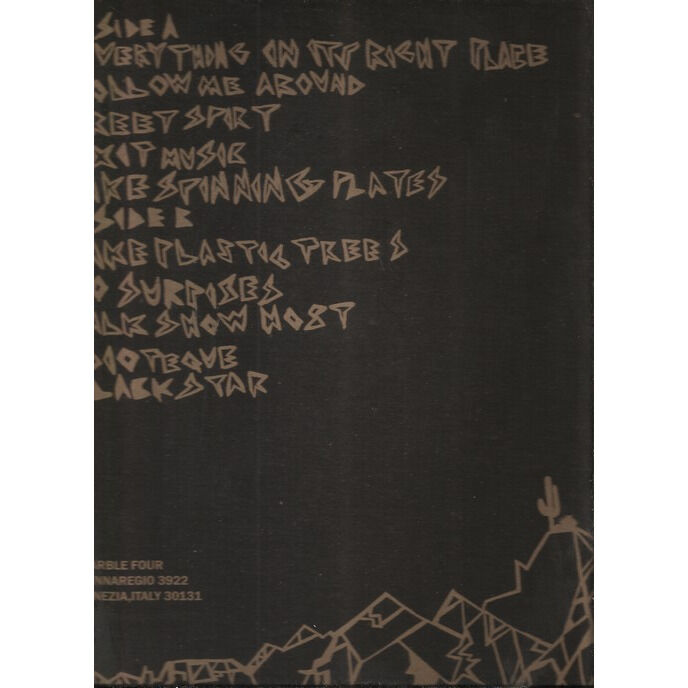 SIDE A
VERYTHING IN ITS RIGHT PLACE
OLLOW ME AROUND
REET SPIRT
XIT MUSIC
IKE SPINNING PLATES
SIDE B
AKE PLASTIC TREES
O SURPISES
ALK SHOW HOST
DIOTEQUE
LACK STAR
ARBLE FOUR
NNAREGIO 3922
NEZIA,ITALY 30131